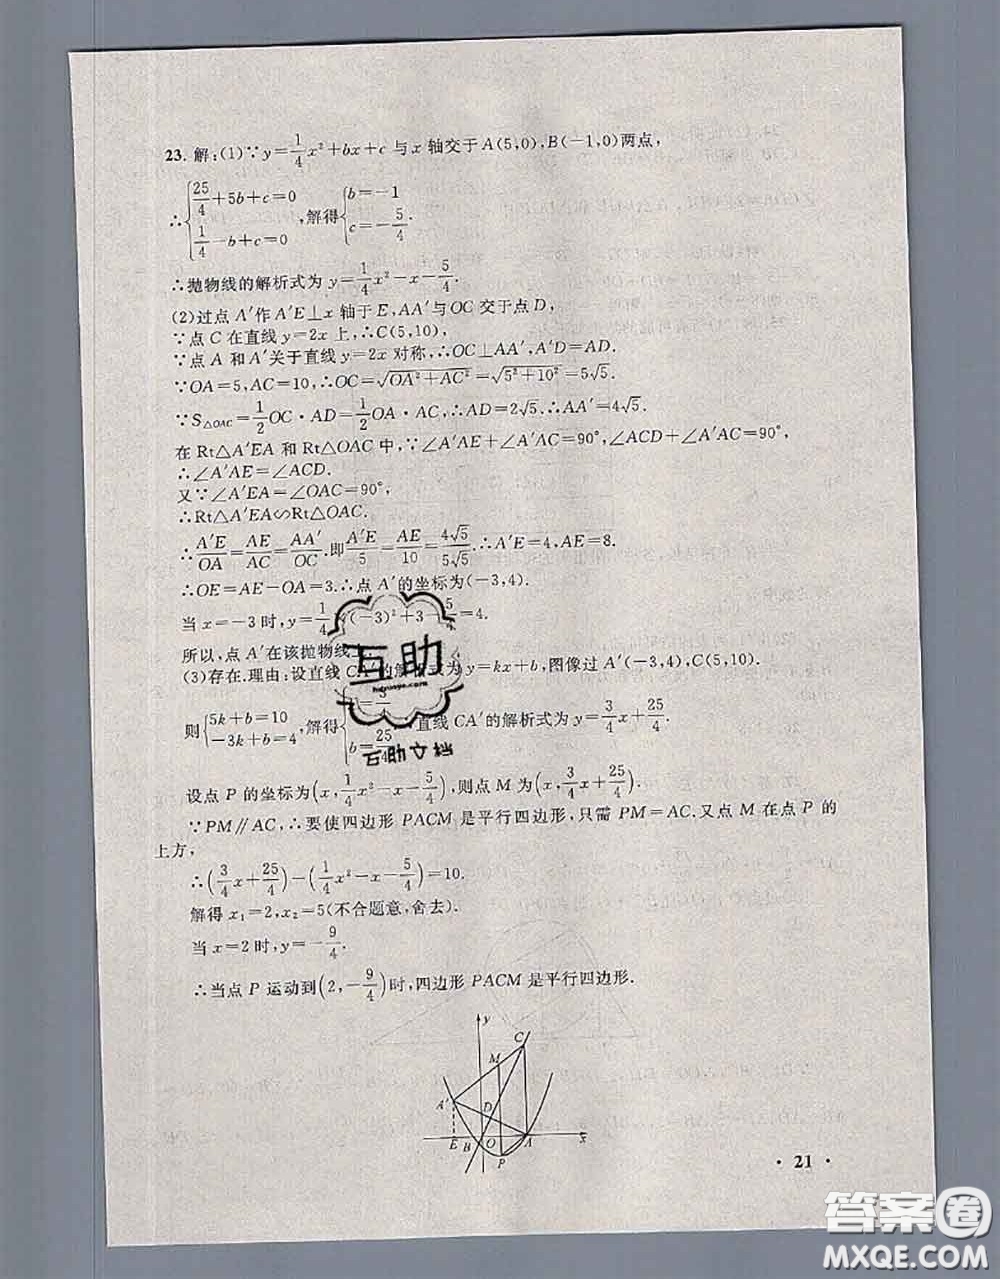 23. 解:(1)∵y=1/4x²+bx+c 与 x 轴交于 A(5,0),B(-1,0)两点,
∴{25/4+5b+c=0, 1/4-b+c=0 ,解得{b=-1, c=-5/4.
∴抛物线的解析式为 y=1/4x²-x-5/4.
(2)过点 A′作 A′E⊥x 轴于 E,AA′与 OC 交于点 D,
∵点 C 在直线 y=2x 上,∴C(5,10),
∵点 A 和 A′关于直线 y=2x 对称,∴OC⊥AA′,A′D=AD.
∵OA=5,AC=10,∴OC=√(OA²+AC²)=√(5²+10²)=5√5.
∵S△OAC=1/2OC·AD=1/2OA·AC,∴AD=2√5.∴AA′=4√5.
在 Rt△A′EA 和 Rt△OAC 中,∵∠A′AE+∠A′AC=90°,∠ACD+∠A′AC=90°,
∴∠A′AE=∠ACD.
又∵∠A′EA=∠OAC=90°,
∴Rt△A′EA∽Rt△OAC.
∴A′E/OA=AE/AC=AA′/OC.即A′E/5=AE/10=4√5/5√5.∴A′E=4,AE=8.
∴OE=AE-OA=3.∴点 A′的坐标为(-3,4).
当 x=-3 时,y=1/4 (-3)²+3-5/4=4.
所以,点 A′在该抛物线上.
(3)存在.理由:设直线 CA′的解析式为 y=kx+b,图像过 A′(-3,4),C(5,10).
则{5k+b=10, -3k+b=4 ,解得{ =3/4, b=25/4 直线 CA′的解析式为 y=3/4x+25/4.
设点 P 的坐标为(x,1/4x²-x-5/4),则点 M 为(x,3/4x+25/4).
∵PM∥AC,∴要使四边形 PACM 是平行四边形,只需 PM=AC.又点 M 在点 P 的
上方,
∴(3/4x+25/4)-(1/4x²-x-5/4)=10.
解得 x₁=2,x₂=5(不合题意,舍去).
当 x=2 时,y=-9/4.
∴当点 P 运动到(2,-9/4)时,四边形 PACM 是平行四边形.
y
C
M
A′
D
E B O A x
P
· 21 ·
互助
互助文档
答案卷
MXQE.COM